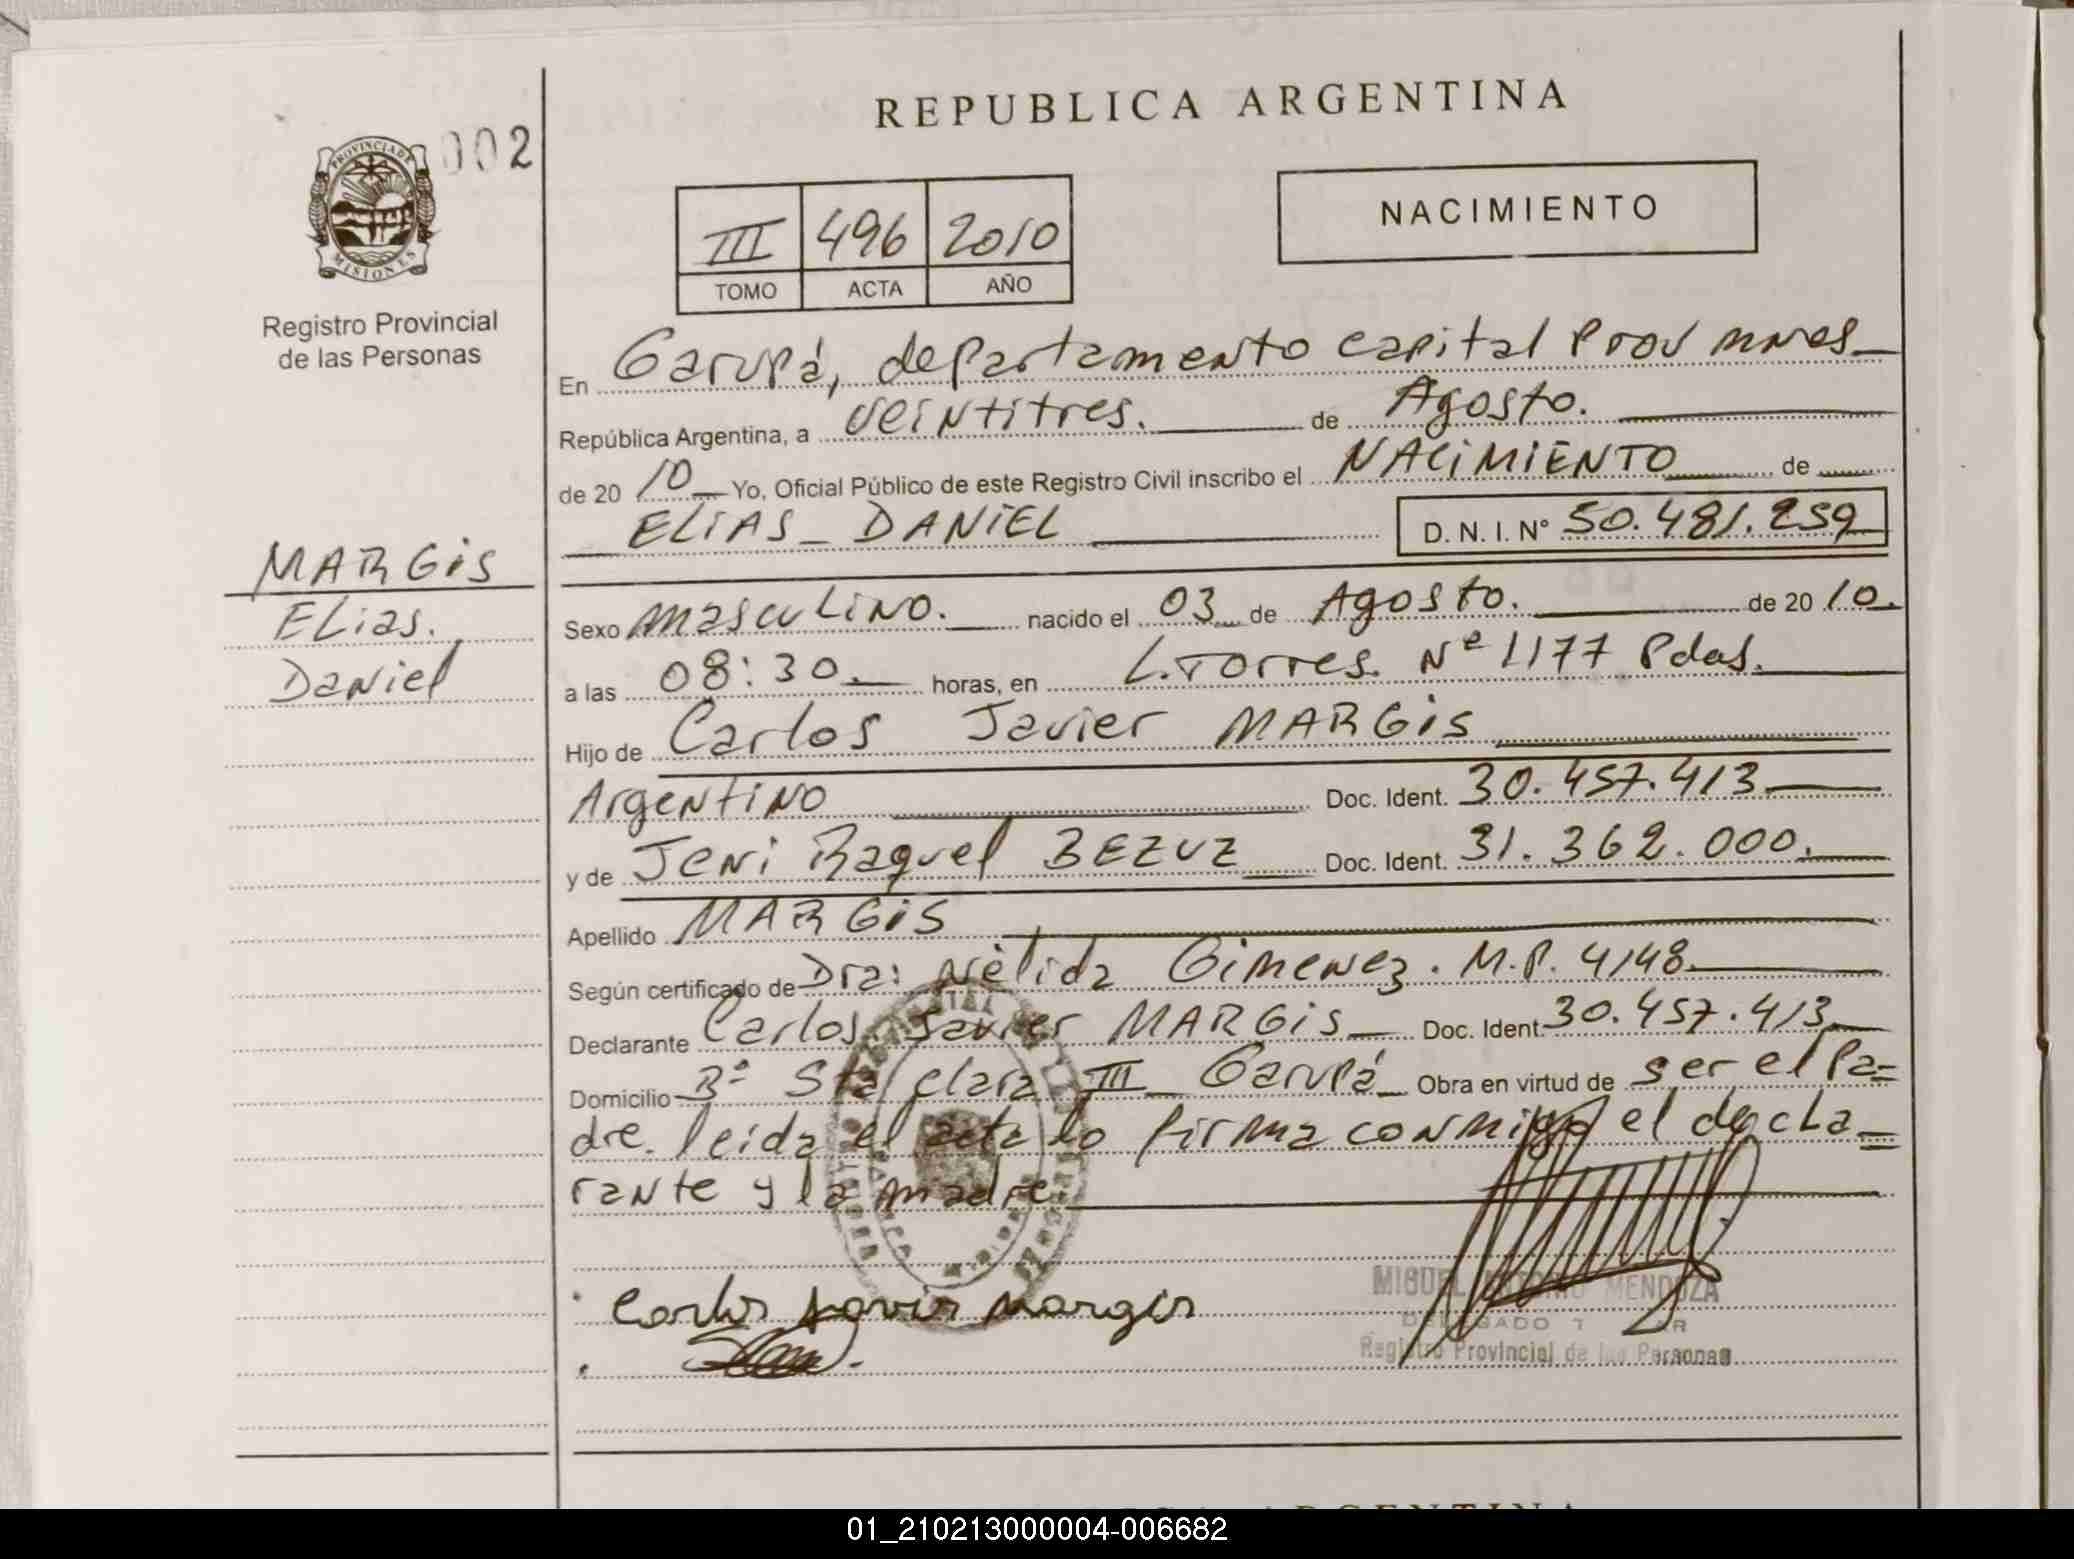 REPUBLICA ARGENTINA
002
PROVINCIA DE
MISIONES
Registro Provincial
de las Personas
III 496 2010
TOMO ACTA AÑO
NACIMIENTO
En Garupá, departamento capital Prov mnes
República Argentina, a veintitres. de Agosto.
de 20 10 Yo, Oficial Público de este Registro Civil inscribo el NACiMIENTO de
ELIAS DANIEL D. N. I. N° 50.481.259
MARGiS
ELias.
Daniel
Sexo masculino. nacido el 03 de Agosto. de 20 10.
a las 08:30 horas, en L.Torres. Nº 1177 Pdas.
Hijo de Carlos Javier MARGiS
Argentino Doc. Ident. 30.457.413
y de Jeni Raquel BEZUZ Doc. Ident. 31.362.000.
Apellido MARGiS
Según certificado de Dra: Nélida Gimenez. M.P. 4148
Declarante Carlos Javier MARGiS Doc. Ident. 30.457.413
Domicilio Bº Sta clara III Garupá Obra en virtud de ser el Pa=
dre. leida el acta lo firma conmigo el decla=
rante y la madre.
Carlos Javier Margis
MIGUEL MENDOZA
Registro Provincial de las Personas
ARGENTINA
01_210213000004-006682